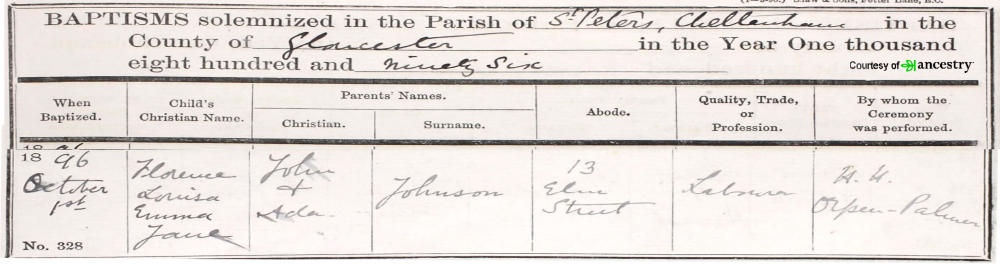 BAPTISMS solemnized in the Parish of St Peters, Cheltenham in the
County of Gloucester in the Year One thousand
eight hundred and ninety six
Courtesy of ancestry
When Baptized.
Child's Christian Name.
Parents' Names.
Christian.
Surname.
Abode.
Quality, Trade, or Profession.
By whom the Ceremony was performed.
1896
October
1st
No. 328
Florence
Louisa
Emma
Jane
John
+
Ada
Johnson
13
Elm
Street
Labourer
H. H.
Orpen-Palmer